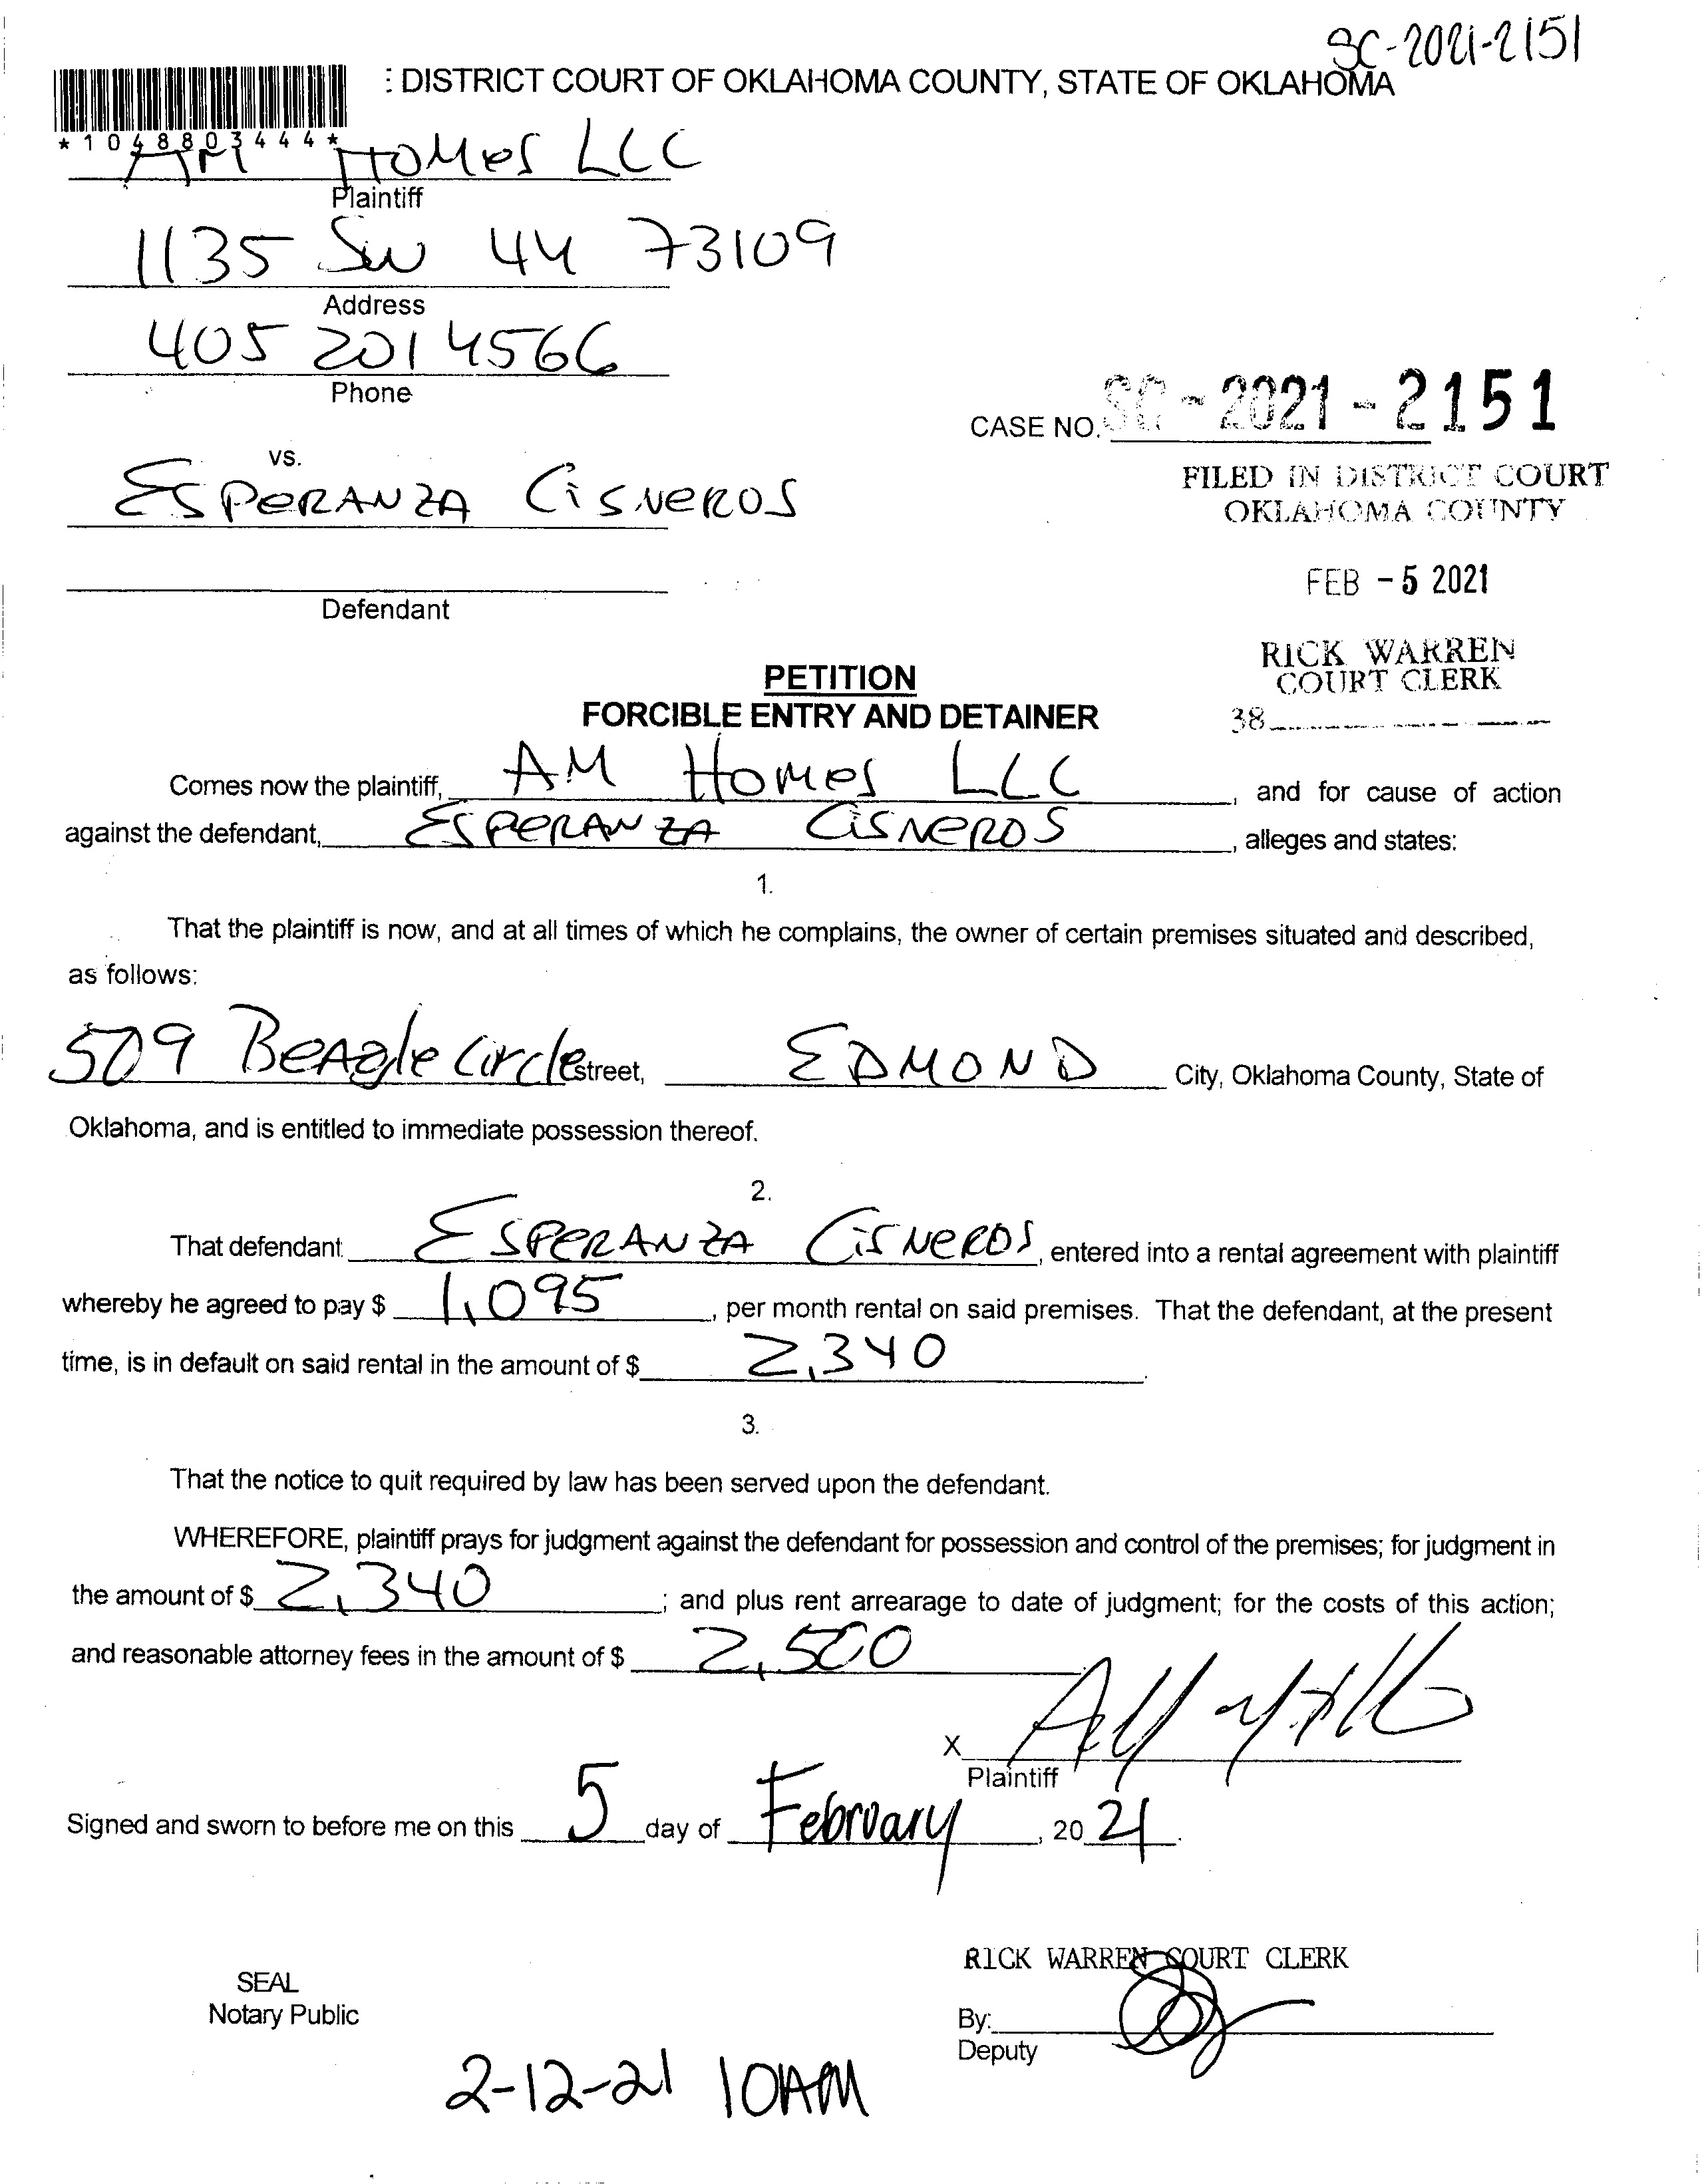 SC-2021-2151
: DISTRICT COURT OF OKLAHOMA COUNTY, STATE OF OKLAHOMA
*1048803444*
AM Homes LLC
Plaintiff
1135 SW 44 73109
Address
405 201 4566
Phone
CASE NO. SC-2021-2151
vs.
FILED IN DISTRICT COURT
OKLAHOMA COUNTY
ESPERANZA CISNEROS
FEB -5 2021
Defendant
RICK WARREN
COURT CLERK
38
PETITION
FORCIBLE ENTRY AND DETAINER
Comes now the plaintiff, AM Homes LLC, and for cause of action
against the defendant, ESPERANZA CISNEROS, alleges and states:
1.
That the plaintiff is now, and at all times of which he complains, the owner of certain premises situated and described,
as follows:
509 Beagle Circle street, EDMOND City, Oklahoma County, State of
Oklahoma, and is entitled to immediate possession thereof.
2.
That defendant ESPERANZA CISNEROS, entered into a rental agreement with plaintiff
whereby he agreed to pay $ 1,095, per month rental on said premises. That the defendant, at the present
time, is in default on said rental in the amount of $ 2,340.
3.
That the notice to quit required by law has been served upon the defendant.
WHEREFORE, plaintiff prays for judgment against the defendant for possession and control of the premises; for judgment in
the amount of $ 2,340; and plus rent arrearage to date of judgment; for the costs of this action;
and reasonable attorney fees in the amount of $ 2,500.
X
Plaintiff
Signed and sworn to before me on this 5 day of February, 2021.
RICK WARREN COURT CLERK
SEAL
Notary Public
By:
Deputy
2-12-21 10AM